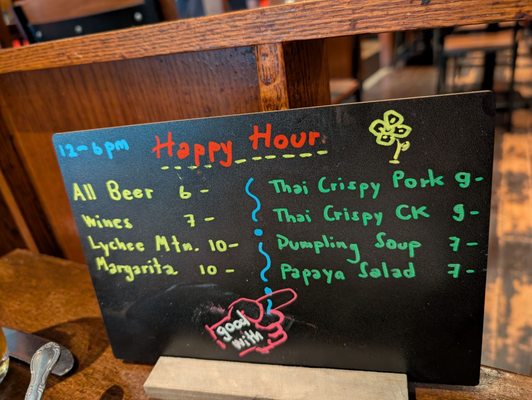 12-6pm Happy Hour
All Beer 6-
Wines 7-
Lychee Mtn. 10-
Margarita 10-
Thai Crispy Pork 9-
Thai Crispy CK 9-
Dumpling Soup 7-
Papaya Salad 7-
good
with